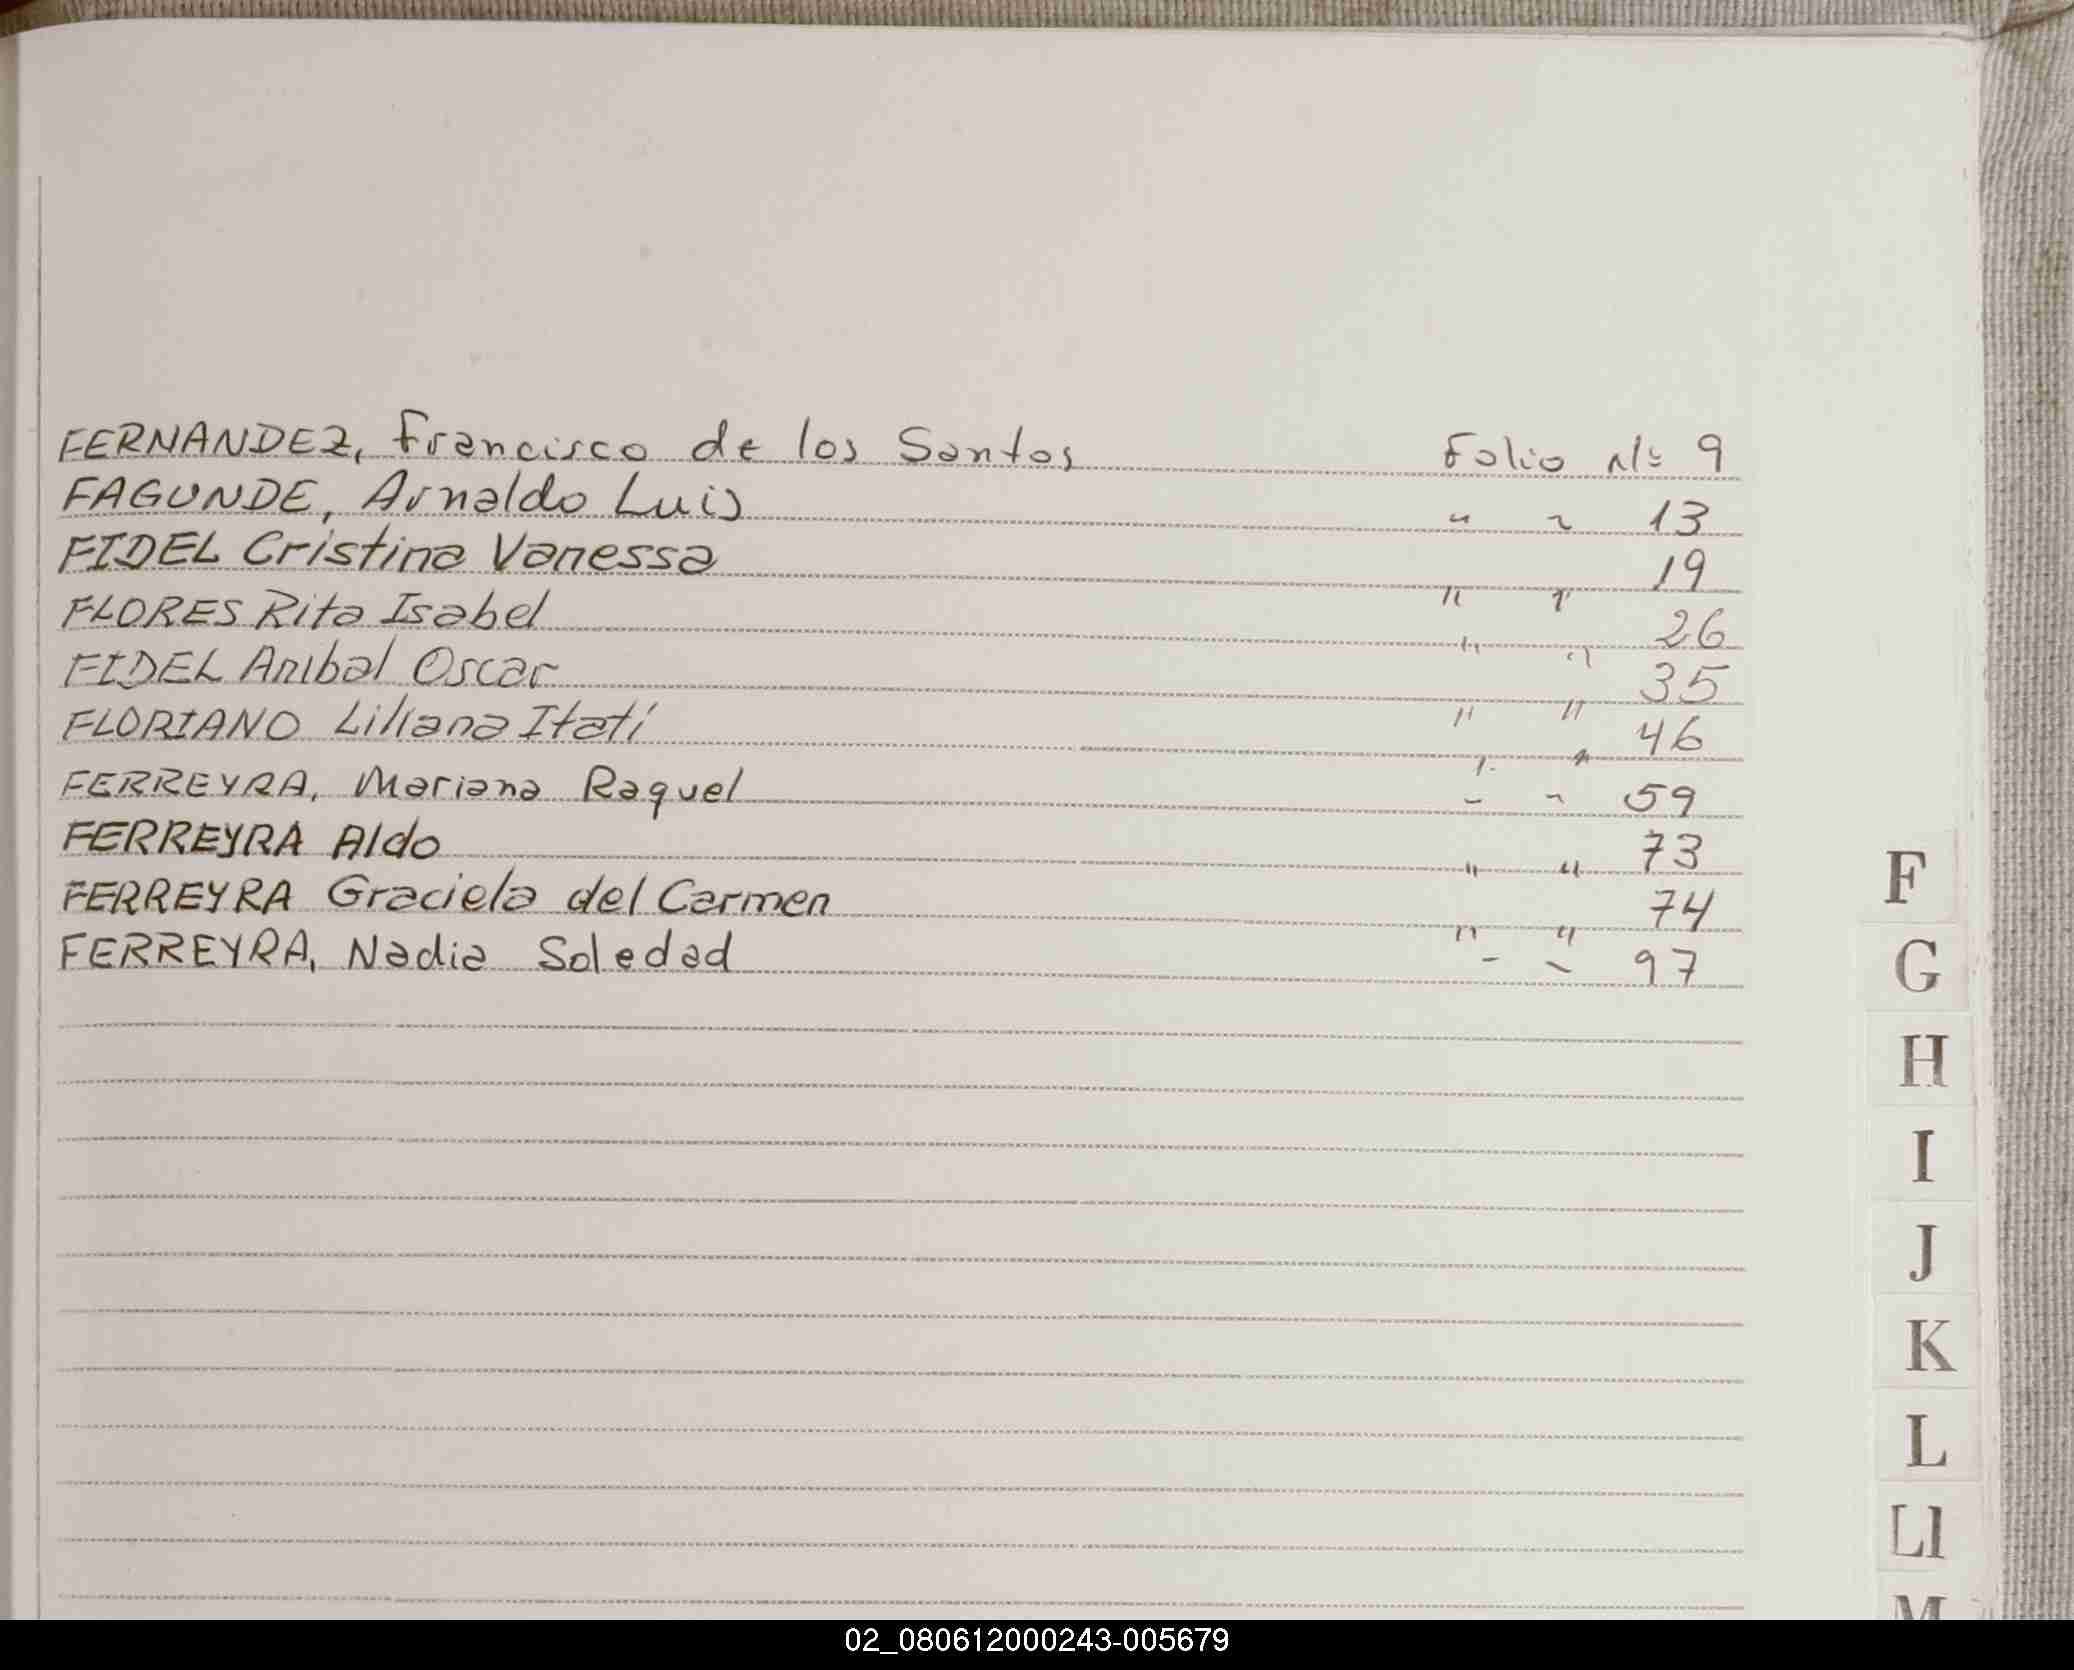 FERNANDEZ, Francisco de los Santos Folio Nº 9
FAGUNDE, Arnaldo Luis " " 13
FIDEL Cristina Vanessa " " 19
FLORES Rita Isabel " " 26
FIDEL Anibal Oscar " " 35
FLORIANO Liliana Itatí " " 46
FERREYRA, Mariana Raquel " " 59
FERREYRA Aldo " " 73
FERREYRA Graciela del Carmen " " 74
FERREYRA, Nadia Soledad " " 97
F
G
H
I
J
K
L
Ll
M
02_080612000243-005679